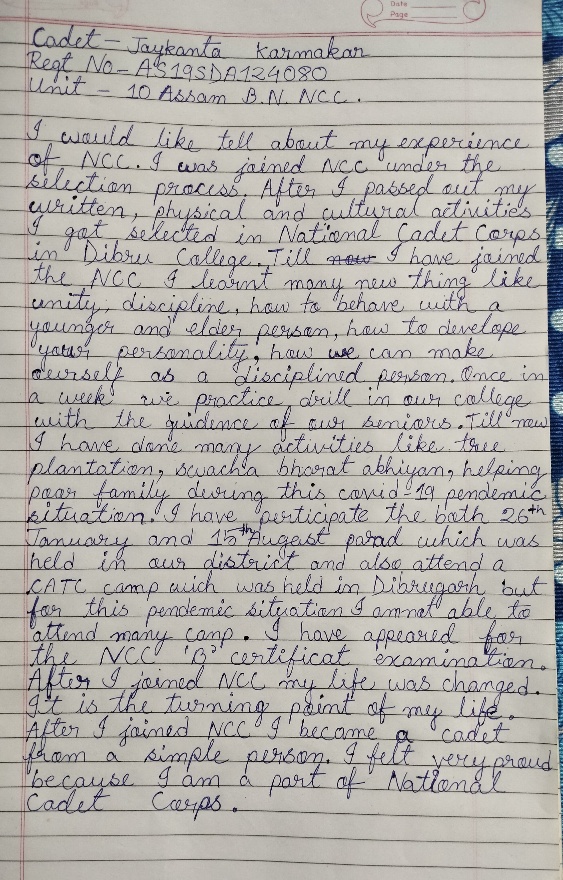 Date
Page
Cadet - Jaykanta Karmakar
Regt No - AS19SDA124080
Unit - 10 Assam B.N. NCC.
I would like tell about my experience
of NCC. I was joined NCC under the
selection process After I passed out my
written, physical and cultural activities
I got selected in National Cadet Corps
in Dibru College. Till now I have joined
the NCC I learnt many new thing like
unity, discipline, how to behave with a
younger and elder person, how to develope
your personality, how we can make
ourself as a disciplined person. Once in
a week we practice drill in our college
with the guidence of our seniors. Till now
I have done many activities like tree
plantation, swacha bharat abhiyan, helping
poor family during this covid-19 pendemic
situation. I have perticipate the both 26th
January and 15th Augest parad which was
held in our district and also attend a
CATC camp wich was held in Dibrugarh but
for this pendemic situation I amnot able to
attend many camp. I have appeared for
the NCC 'B' certificat examination.
After I joined NCC my life was changed.
It is the turning point of my life.
After I joined NCC I became a cadet
from a simple person. I felt very proud
because I am a part of National
Cadet Corps.